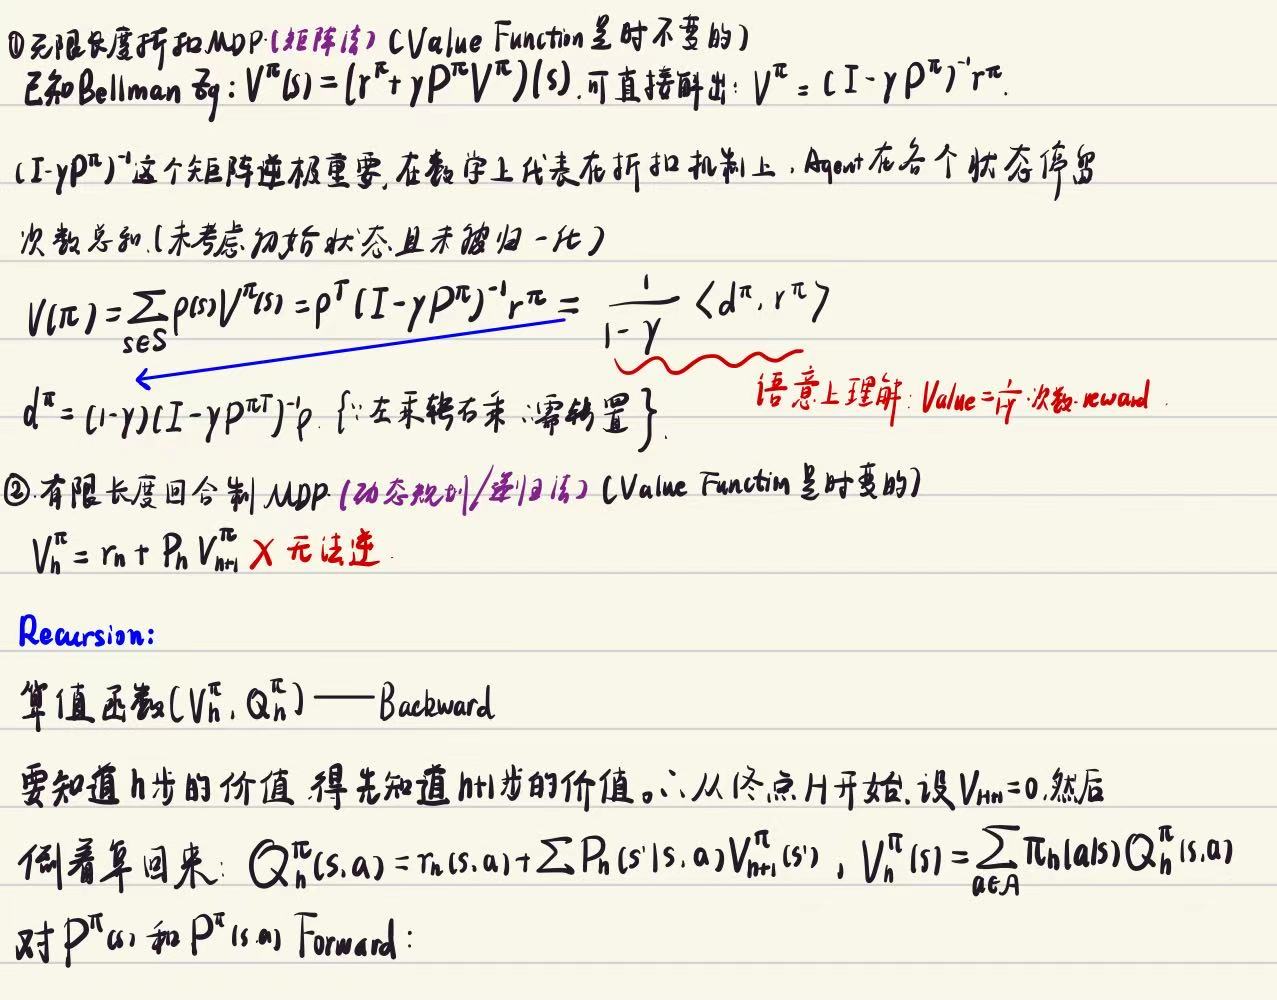 ①无限长度折扣MDP.(矩阵法)(Value Function是时不变的)
已知Bellman Eq: V^π(s)=(r^π+γP^πV^π)(s).可直接解出: V^π=(I-γP^π)^{-1}r^π.
(I-γP^π)^{-1}这个矩阵逆极重要,在数学上代表在折扣机制上,Agent在各个状态停留
次数总和.(未考虑初始状态且未被归一化)
V(π)=∑_{s∈S}ρ(s)V^π(s)=ρ^T(I-γP^π)^{-1}r^π=1/(1-γ)<d^π,r^π>
语意上理解:Value=1/(1-γ)·次数·reward.
d^π=(1-γ)(I-γP^{πT})^{-1}ρ.{∵左乘转右乘∴需转置}.
②.有限长度回合制MDP.(动态规划/递归法)(Value Function是时变的)
V_h^π=r_h+P_hV_{h+1}^π X无法逆.
Recursion:
算值函数(V_h^π,Q_h^π)——Backward
要知道h步的价值 得先知道h+1步的价值。∴从终点H开始.设V_{H+1}=0.然后
倒着算回来: Q_h^π(s,a)=r_h(s,a)+∑P_h(s'|s,a)V_{h+1}^π(s'), V_h^π(s)=∑_{a∈A}π_h(a|s)Q_h^π(s,a)
对P^π(s)和P^π(s,a) Forward: